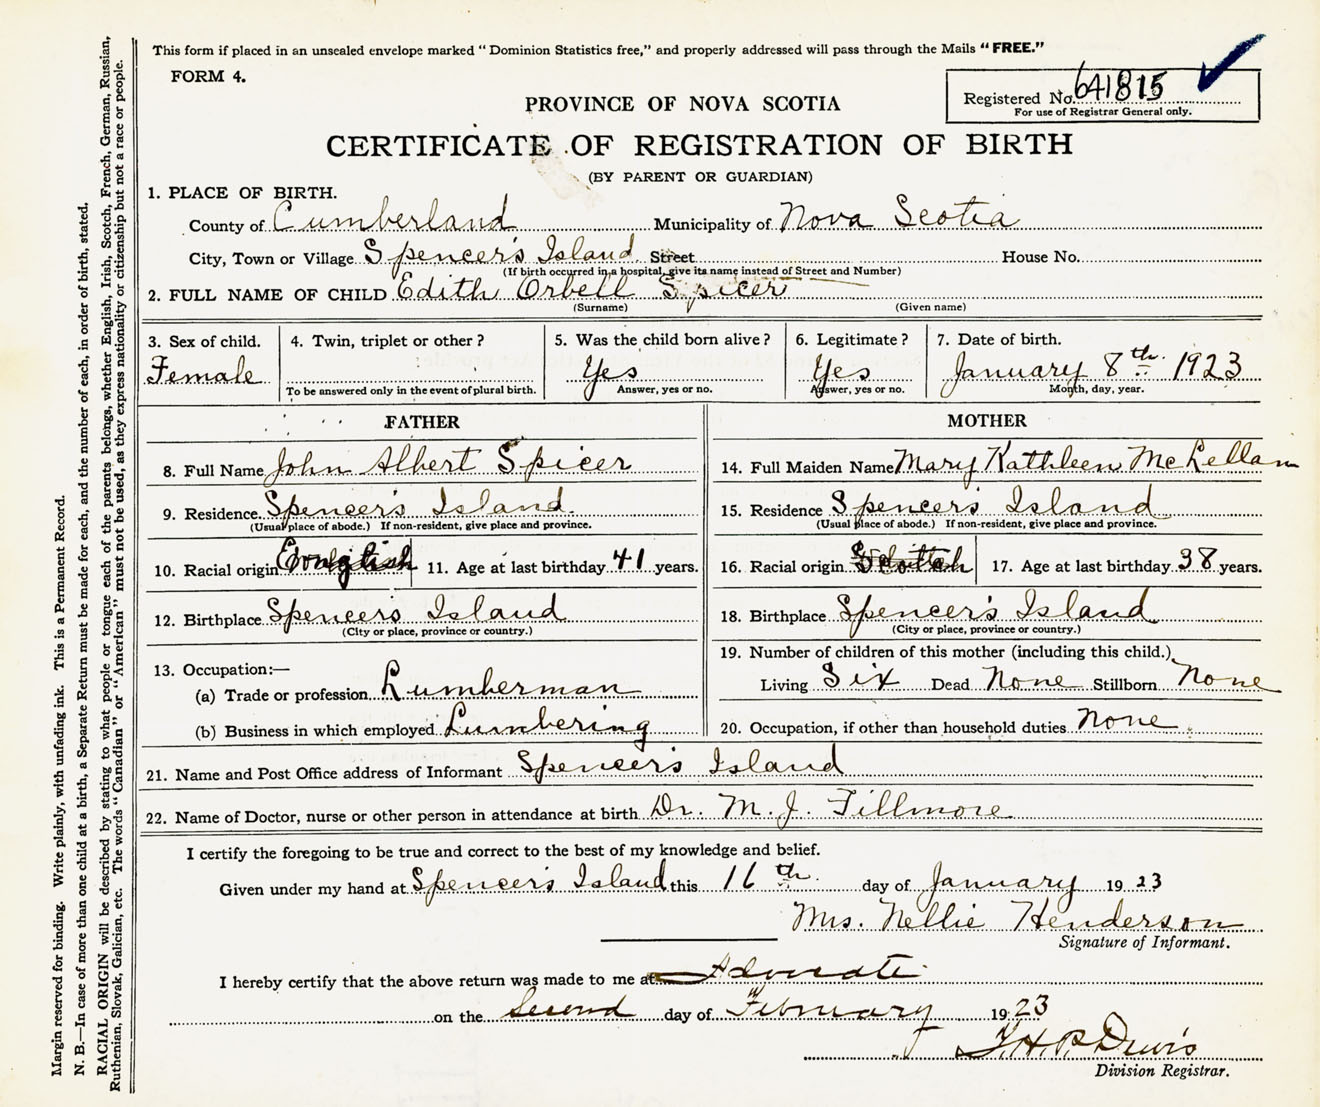 This form if placed in an unsealed envelope marked "Dominion Statistics free," and properly addressed will pass through the Mails "FREE."
FORM 4.
Registered No. 641815
For use of Registrar General only.
PROVINCE OF NOVA SCOTIA
CERTIFICATE OF REGISTRATION OF BIRTH
(BY PARENT OR GUARDIAN)
1. PLACE OF BIRTH.
County of Cumberland Municipality of Nova Scotia
City, Town or Village Spencer's Island Street House No.
(If birth occurred in a hospital, give its name instead of Street and Number)
2. FULL NAME OF CHILD Edith Orbell Spicer
(Surname) (Given name)
3. Sex of child. Female
4. Twin, triplet or other?
To be answered only in the event of plural birth.
5. Was the child born alive? Yes
Answer, yes or no.
6. Legitimate? Yes
Answer, yes or no.
7. Date of birth. January 8th. 1923
Month, day, year.
FATHER
8. Full Name John Albert Spicer
9. Residence Spencer's Island.
(Usual place of abode.) If non-resident, give place and province.
10. Racial origin English 11. Age at last birthday 41 years.
12. Birthplace Spencer's Island
(City or place, province or country.)
13. Occupation:—
(a) Trade or profession Lumberman
(b) Business in which employed Lumbering
MOTHER
14. Full Maiden Name Mary Kathleen McLellan
15. Residence Spencer's Island
(Usual place of abode.) If non-resident, give place and province.
16. Racial origin Scottish 17. Age at last birthday 38 years.
18. Birthplace Spencer's Island
(City or place, province or country.)
19. Number of children of this mother (including this child.)
Living Six Dead None Stillborn None
20. Occupation, if other than household duties None
21. Name and Post Office address of Informant Spencer's Island
22. Name of Doctor, nurse or other person in attendance at birth Dr. M. J. Fillmore
I certify the foregoing to be true and correct to the best of my knowledge and belief.
Given under my hand at Spencer's Island this 16th. day of January 1923
Mrs. Nellie Henderson
Signature of Informant.
I hereby certify that the above return was made to me at Advocate
on the Second day of February 1923
Division Registrar.
Margin reserved for binding. Write plainly, with unfading ink. This is a Permanent Record.
N. B.—In case of more than one child at a birth, a Separate Return must be made for each, and the number of each, in order of birth, stated.
RACIAL ORIGIN will be described by stating to what people or tongue each of the parents belongs, whether English, Irish, Scotch, French, German, Russian,
Ruthenian, Slovak, Galician, etc. The words "Canadian" or "American" must not be used, as they express nationality or citizenship but not a race or people.